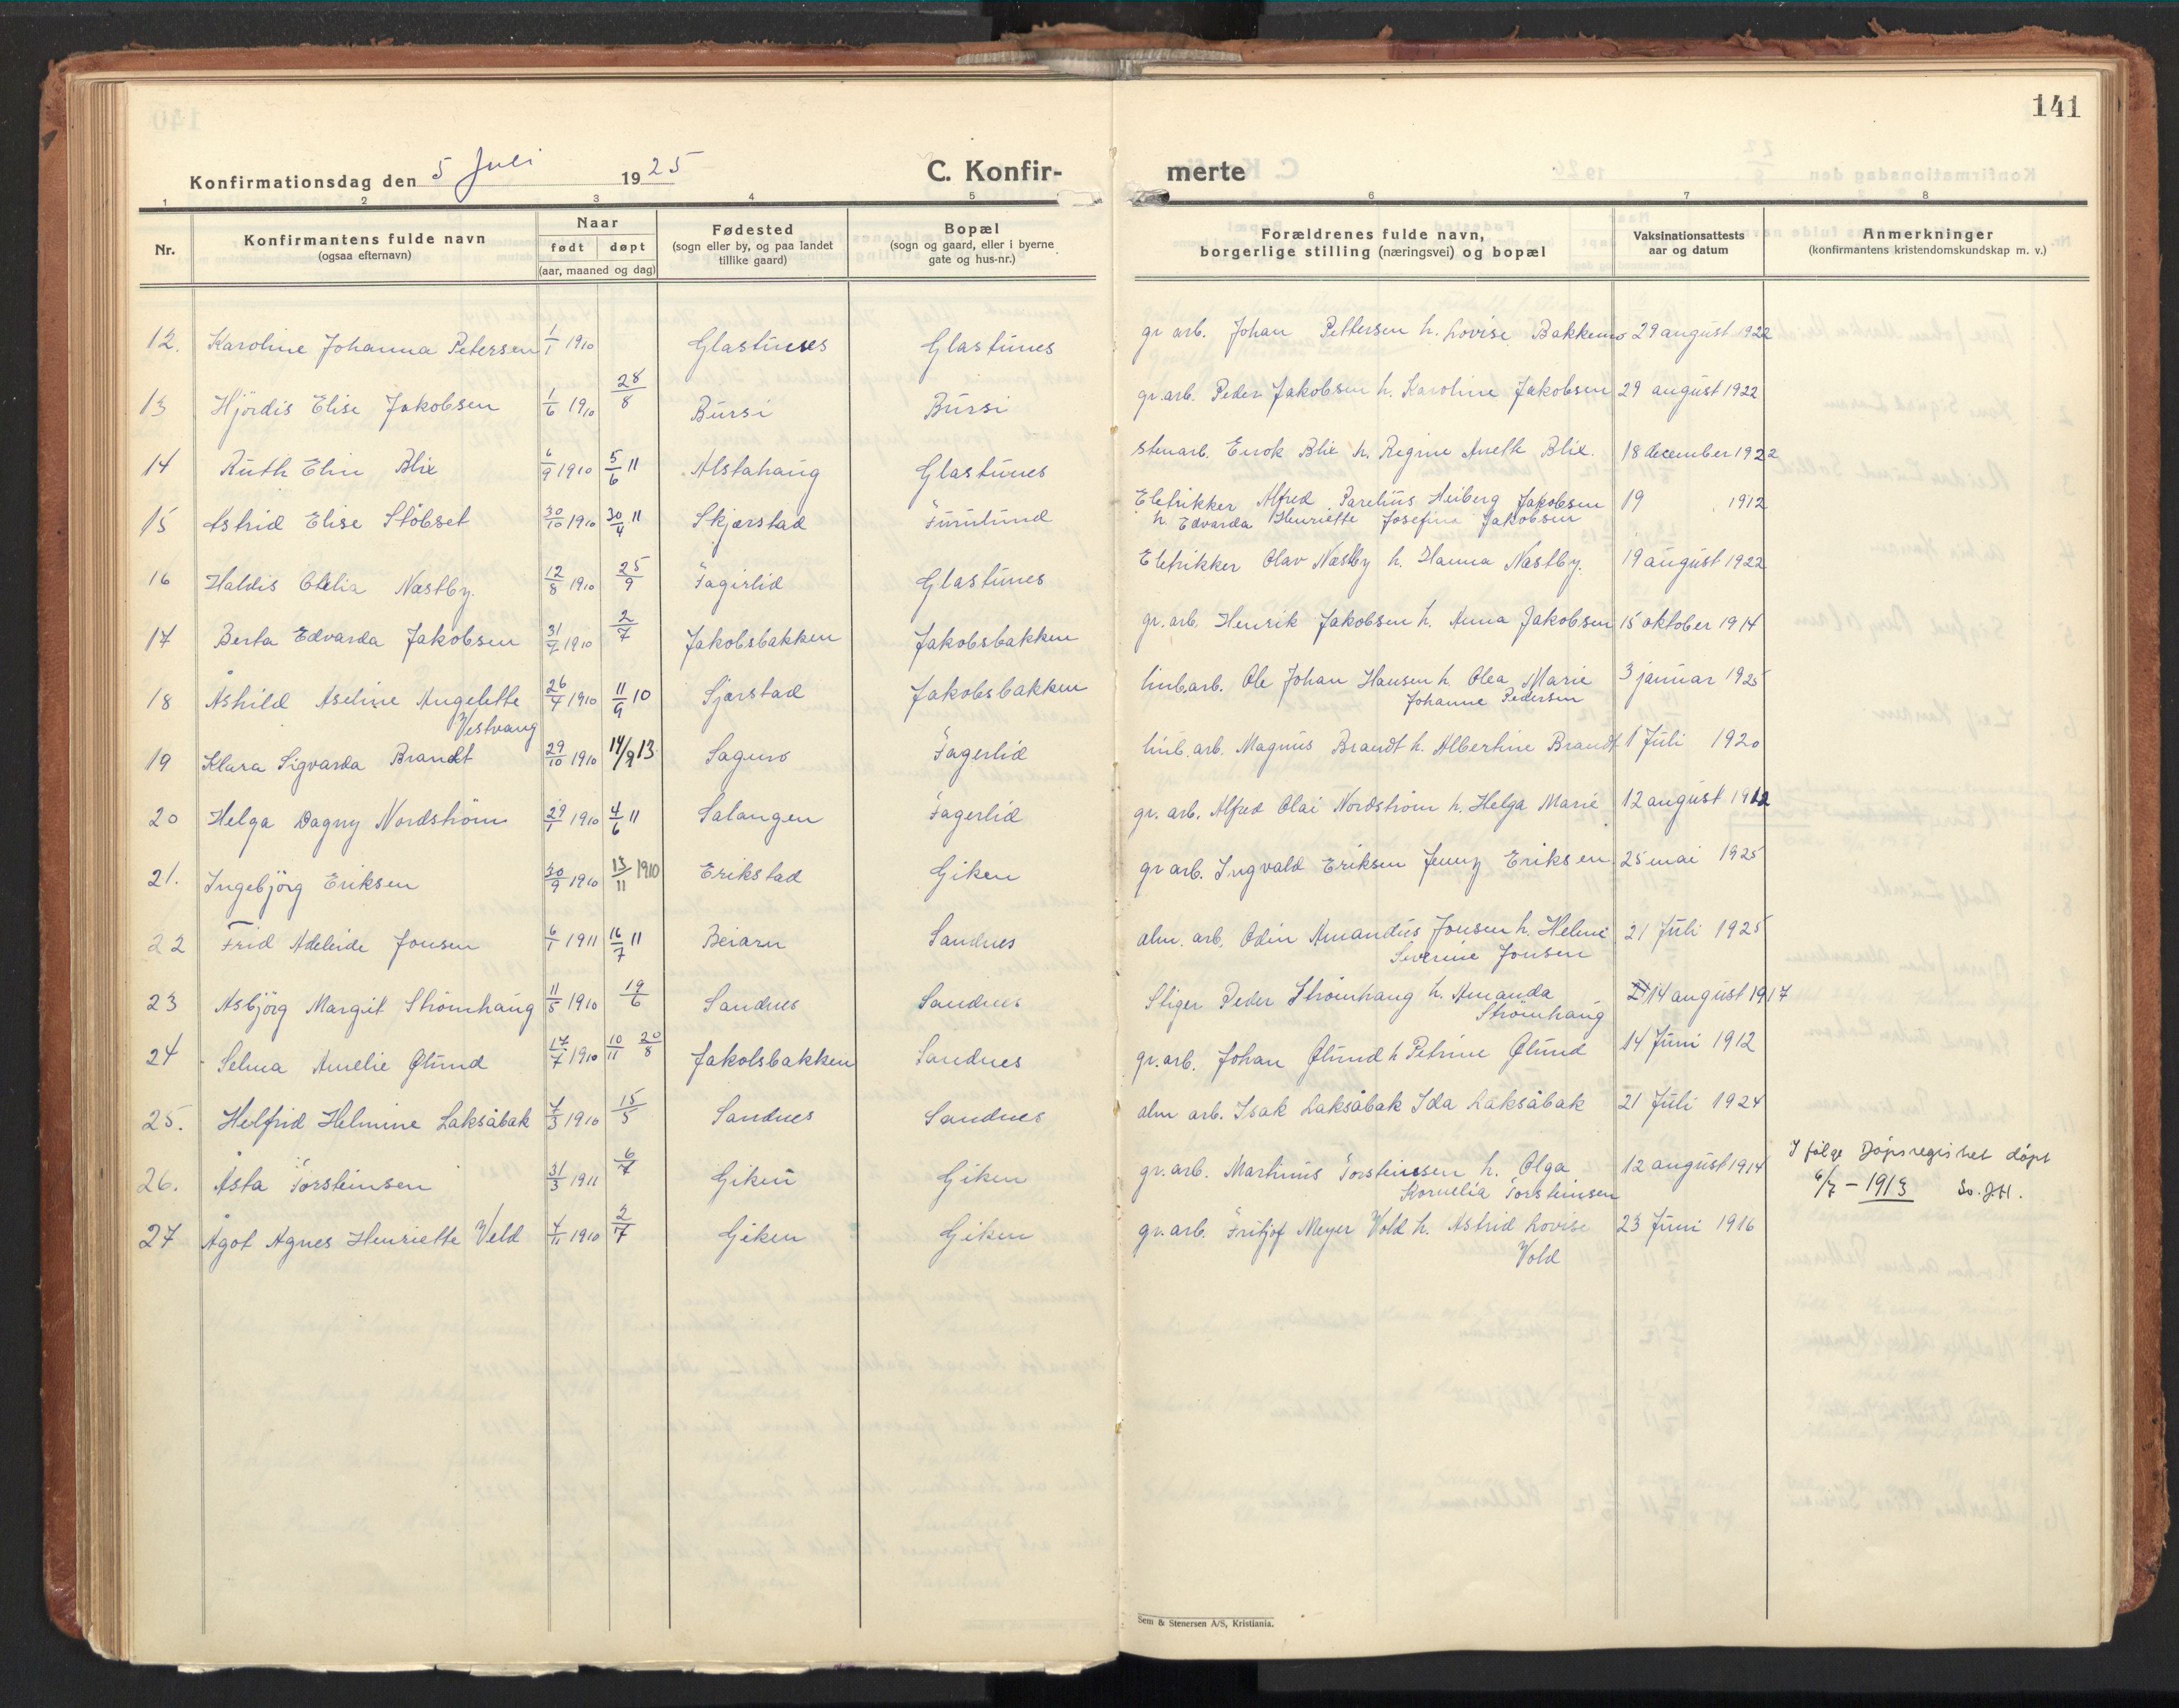 141
Konfirmationsdag den 5 Juli 1925 C. Konfir- merte
1 2 3 4 5 6 7 8
Nr. Konfirmantens fulde navn (ogsaa efternavn) Naar født døpt (aar, maaned og dag) Fødested (sogn eller by, og paa landet tillike gaard) Bopæl (sogn og gaard, eller i byerne gate og hus-nr.) Forældrenes fulde navn, borgerlige stilling (næringsvei) og bopæl Vaksinationsattests aar og datum Anmerkninger (konfirmantens kristendomskundskap m. v.)
12. Karoline Johanna Petersen 1/1 1910 Glastunes Glastunes gr arb. Johan Pettersen h. Lovise Bakkemo 29 august 1922
13 Hjördis Elise Jakobsen 1/6 1910 28/8 Bursi Bursi gr. arb. Peder Jakobsen h. Karoline Jakobsen 29 august 1922
14 Ruth Elin Blix 6/9 1910 5/6 11 Alstahaug Glastunes stenarb. Enok Blix h. Regine Anette Blix. 18 december 1922
15 Astrid Elise Stöbset 30/10 1910 30/4 11 Skjærstad Furulund Eletrikker Alfred Parelius Heiberg Jakobsen 19 1912
h. Edvarda Henriette Josefine Jakobsen
16 Haldis Otelia Næstby. 12/8 1910 25/9 Fagirlid Glastunes Eletrikker Olav Næstby h. Hanna Næstby. 19 august 1922
17 Berta Edvarda Jakobsen 31/7 1910 2/7 Jakobsbakken Jakobsbakken gr. arb. Henrik Jakobsen h. Anna Jakobsen 15 oktober 1914
18 Åshild Aseline Angelette 26/4 1910 11/9 10 Sjærstad Jakobsbakken linb.arb. Ole Johan Hansen h. Olea Marie 3 januar 1925
Vestvang Johanne Pedersen
19 Klara Sigvarda Brandt 29/10 1910 14/9 13 Sagmo Fagerlid linb. arb. Magnus Brandt h. Albertine Brandt 1 Juli 1920
20 Helga Dagny Nordström 29/1 1910 4/6 11 Salangen Fagerlid gr. arb. Alfred Olai Nordström h. Helga Marie 12 august 1912
21. Ingebjörg Eriksen 30/9 1910 13/11 1910 Erikstad Giken gr arb. Ingvald Eriksen Jenny Eriksen 25 mai 1925
22 Frid Adeleide Jonsen 6/1 1911 16/7 11 Beiarn Sandnes alm. arb. Odin Amandus Jonsen h. Helmi 21 Juli 1925
Severine Jonsen
23 Asbjörg Margit Strömhaug 11/5 1910 19/6 Sandnes Sandnes Stiger Peder Strömhaug h. Amanda 14 august 1917
Strömhaug
24 Selma Amelie Ølund 17/7 1910 10/11 20/8 Jakolsbakken Sandnes gr. arb. Johan Ølund h Petrine Ølund 14 Juni 1912
25. Helfrid Helmine Laksåbak 7/3 1910 15/5 Sandnes Sandnes alm arb. Isak Laksåbak Ida Laksåbak 21 Juli 1924
26. Åsta Torsteinsen 31/3 1911 6/7 Giken Giken gr. arb. Martinus Torsteinssen h. Olga 12 august 1914 I følge Döpsregistret döpt
Kornelia Torsteinsen 6/7 – 1913 So. J.H.
27 Ågot Agnes Henriette Veld 4/11 1910 2/7 Giken Giken gr. arb. Fritjof Meyer Vold h. Astrid Lovise 23 Juni 1916
Vold
Sem & Stenersen A/S, Kristiania.